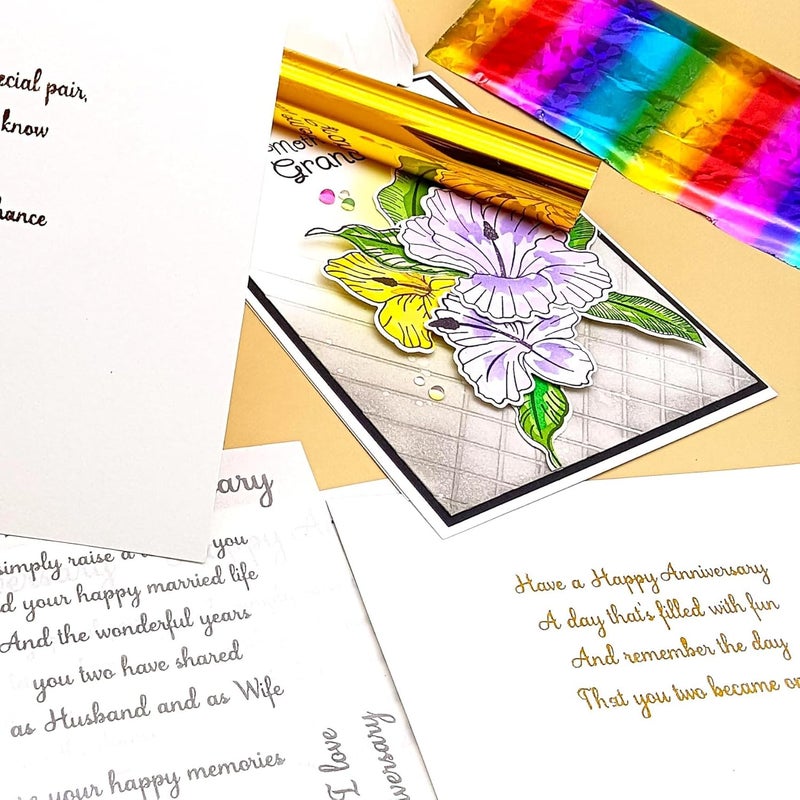 ecial pair,
know
hance
Grand
ary
simply raise a you
d your happy married life
And the wonderful years
you two have shared
as Husband and as Wife
your happy memories
I love
versary
Have a Happy Anniversary
A day that's filled with fun
And remember the day
That you two became on